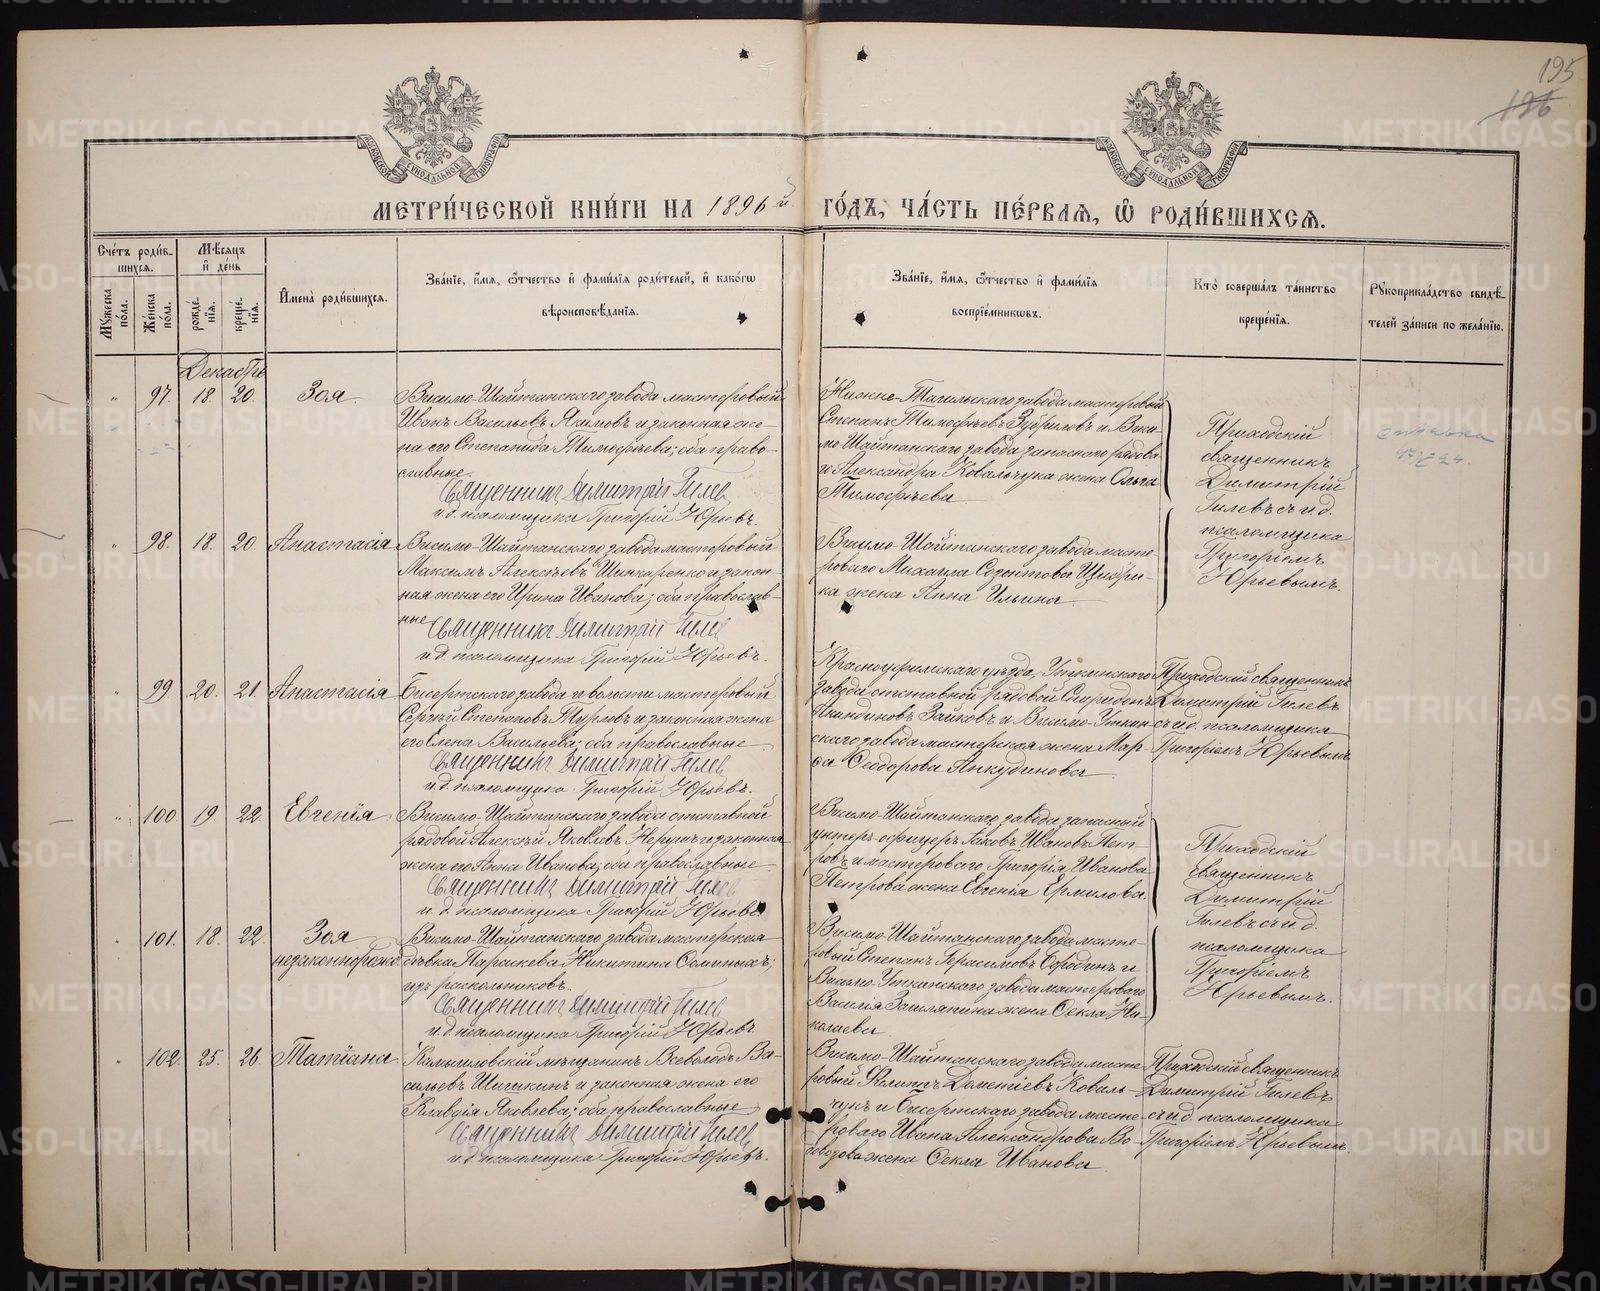 195
196
МОСКОВСКОЙ СѴНОДАЛЬНОЙ ТИПОГРАФІИ
МОСКОВСКОЙ СѴНОДАЛЬНОЙ ТИПОГРАФІИ
МЕТРИ́ЧЕСКОЙ КНИ́ГИ НА 1896 й ГО́ДЪ, ЧА́СТЬ ПЕ́РВАЯ, Ѡ РОДИ́ВШИХСЯ.
Сче́тъ роди́в-
шихся.
Му́жеска по́ла.
Же́нска по́ла.
Мѣсяцъ
и де́нь
рожде́-
нїя.
креще́-
нїя.
И҆мена̀ роди́вшихся.
Зва́нїе, и҆́мя, ѻ҆́тчество и҆ фами́лїя роди́телей, и҆ како́гѡ
вѣроисповѣ́данїя.
Зва́нїе, и҆́мя, ѻ҆́тчество и҆ фами́лїя
воспрїе́мникѡвъ.
Кто̀ соверша́лъ та́инство
креще́нїя.
Рꙋкоприкла́дство свидѣ́-
телей за́писи по жела́нїю.
Декабрь
97. 18. 20. Зоя.
Висимо-Шайтанскаго завода мастеровый
Иванъ Васильевъ Якимовъ и законная же-
на его Степанида Тимофѣева; оба право-
славные.
Священникъ Димитрій Гилевъ
и. д. псаломщика Григорій Юрьевъ.
Нижне-Тагильскаго завода мастеровый
Степанъ Тимофѣевъ Зубриловъ и Виси-
мо-Шайтанскаго завода запаснаго рядова-
го Александра Ковальчука жена Ольга
Тимофѣева
Приходскій
священникъ
Димитрій
Гилевъ с и. д.
псаломщика
Григоріемъ
Юрьевымъ.
справка
98. 18. 20. Анастасія
Висимо-Шайтанскаго завода мастеровый
Максимъ Алексѣевъ Шинкаренко и закон-
ная жена его Ирина Иванова; оба православ-
ные
Священникъ Димитрій Гилевъ
и. д. псаломщика Григорій Юрьевъ.
Висимо-Шайтанскаго завода масте-
роваго Михаила Созонтова Щибри-
ка жена Анна Ильина
99 20. 21. Анастасія
Бисертскаго завода и волости мастеровый
Сергѣй Степановъ Турловъ и законная жена
его Елена Васильева; оба православные
Священникъ Димитрій Гилевъ
и. д. псаломщика Григорій Юрьевъ.
Красноуфимскаго уѣзда, Уткинскаго
завода отставной рядовой Спиридонъ
Акиндиновъ Зайковъ и Висимо-Уткин-
скаго завода мастерская жена Мар-
ѳа Ѳеодорова Анкудинова
Приходскій священникъ
Димитрій Гилевъ
съ и. д. псаломщика
Григоріемъ Юрьевымъ
100 19 22 Евгенія
Висимо-Шайтанскаго завода отставной
рядовой Алексѣй Яковлевъ Нерунъ и законная
жена его Анна Иванова; оба православные
Священникъ Димитрій Гилевъ
и. д. псаломщика Григорій Юрьевъ.
Висимо-Шайтанскаго завода запасный
унтеръ-офицеръ Іаковъ Ивановъ Пет-
ровъ и мастероваго Григорія Иванова
Петрова жена Евгенія Ермилова.
Приходскій
священникъ
Димитрій
Гилевъ с и. д.
псаломщика
Григоріемъ
Юрьевымъ.
101. 18. 22. Зоя
незаконнорожд.
Висимо-Шайтанскаго завода мастерская
дѣвка Параскева Никитина Осминыхъ;
изъ раскольниковъ.
Священникъ Димитрій Гилевъ
и. д. псаломщика Григорій Юрьевъ
Висимо-Шайтанскаго завода масте-
ровый Степанъ Герасимовъ Бородинъ и
Висимо-Уткинскаго завода мастероваго
Василія Зашляпина жена Ѳекла Ни-
колаева
102. 25. 26. Татіана
Камышловскій мѣщанинъ Всеволодъ Ва-
сильевъ Шишкинъ и законная жена его
Клавдія Яковлева; оба православные
Священникъ Димитрій Гилевъ
и. д. псаломщика Григорій Юрьевъ.
Висимо-Шайтанскаго завода масте-
ровый Филиппъ Дометіевъ Коваль-
чукъ и Бисертскаго завода масте-
роваго Ивана Александрова Во-
жена Ѳекла Иванова
Приходскій священникъ
Димитрій Гилевъ
съ и. д. псаломщика
Григоріемъ Юрьевымъ.
METRIKI.GASO-URAL.RU